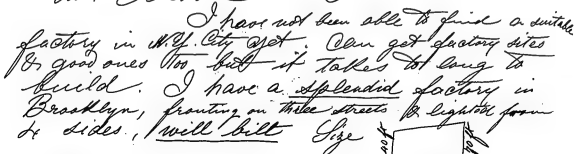 I have not been able to find a suitable
factory in N.Y. City yet. Can get factory sites
& good ones too but it takes to long to
build. I have a splendid factory in
Brooklyn, fronting on three streets & lighted from
4 sides, will bilt Size